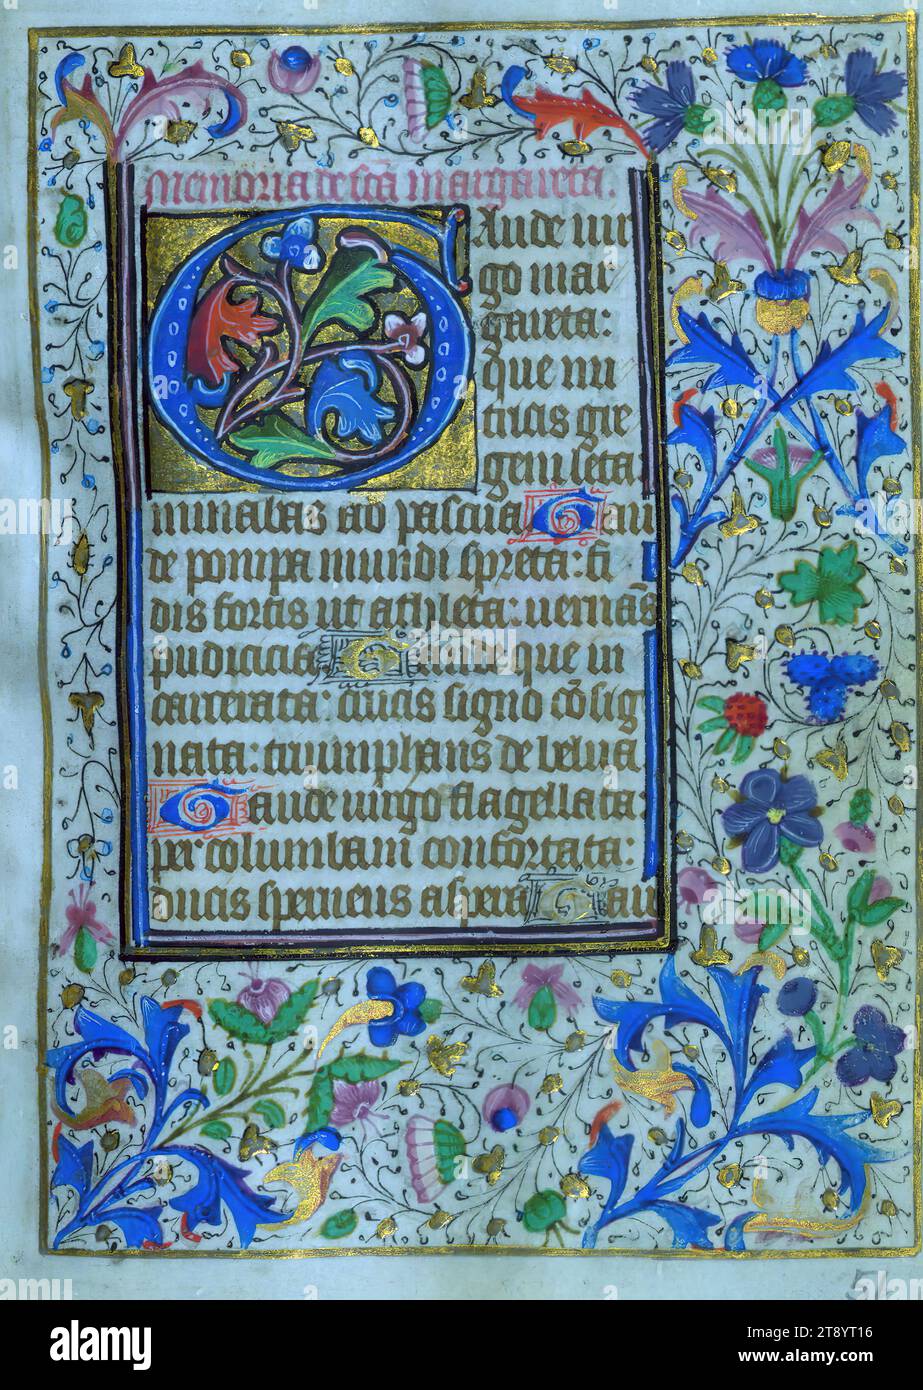 Memoria de scā margareta.
Gaude uir
go mar
gareta:
que nu
tricis gre
gem leta
minabas ad pascua Gau
de pompa mundi spreta: fi
dis fortis ut athleta: uernās
pudicicia Gaude que in
carcerata: crucis signo cōsig
nata: triumphans de belua
Gaude uirgo flagellata:
per columbam confortata:
ducis sperneus aspera Gau
alamy
Image ID: 2T8YT16
www.alamy.com